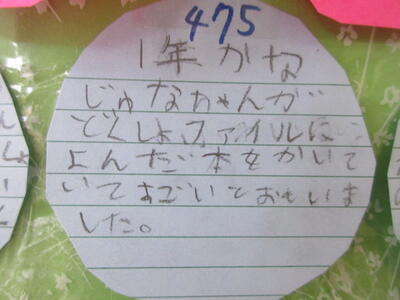 475
1年かな
じゅなちゃんが
どくしょファイルに
よんだ本をかいて
いてすごいておもいま
した。